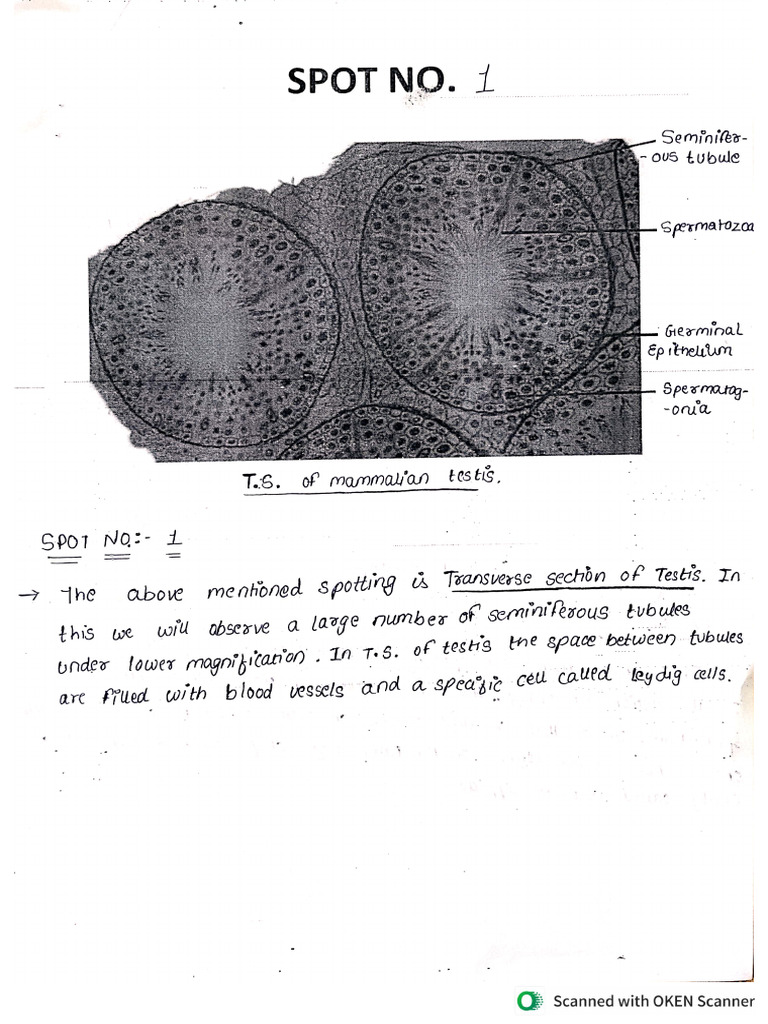 SPOT NO. 1
Seminifer-
-ous tubule
Spermatozoa
Germinal
Epithelium
Spermatog-
-onia
T.S. of mammalian testis.
SPOT NO:- 1
→ The above mentioned spotting is Transverse section of Testis. In
this we will observe a large number of seminiferous tubules
under lower magnification. In T.S. of testis the space between tubules
are filled with blood vessels and a specific cell called leydig cells.
Scanned with OKEN Scanner